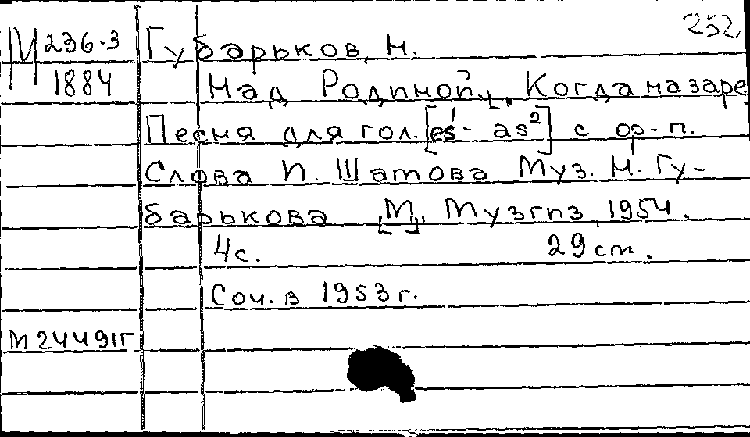 252
М 236-3
1884
Губарьков, Н.
Над Родиной, Когда на заре
Песня для гол. [es¹- as²] с ф-п.
Слова П. Шатова Муз. Н. Гу-
барькова [М], Музгиз, 1954.
4с. 29 cm.
Соч. в 1953 г.
М 24491г